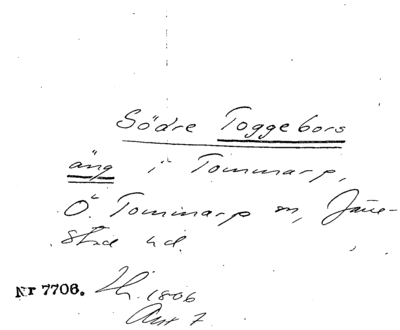 Södre Toggebors
äng i Tommarp,
Ö. Tommarp sn, Järre-
stad hd.
Nr 7706. Lh. 1806
Akt 7